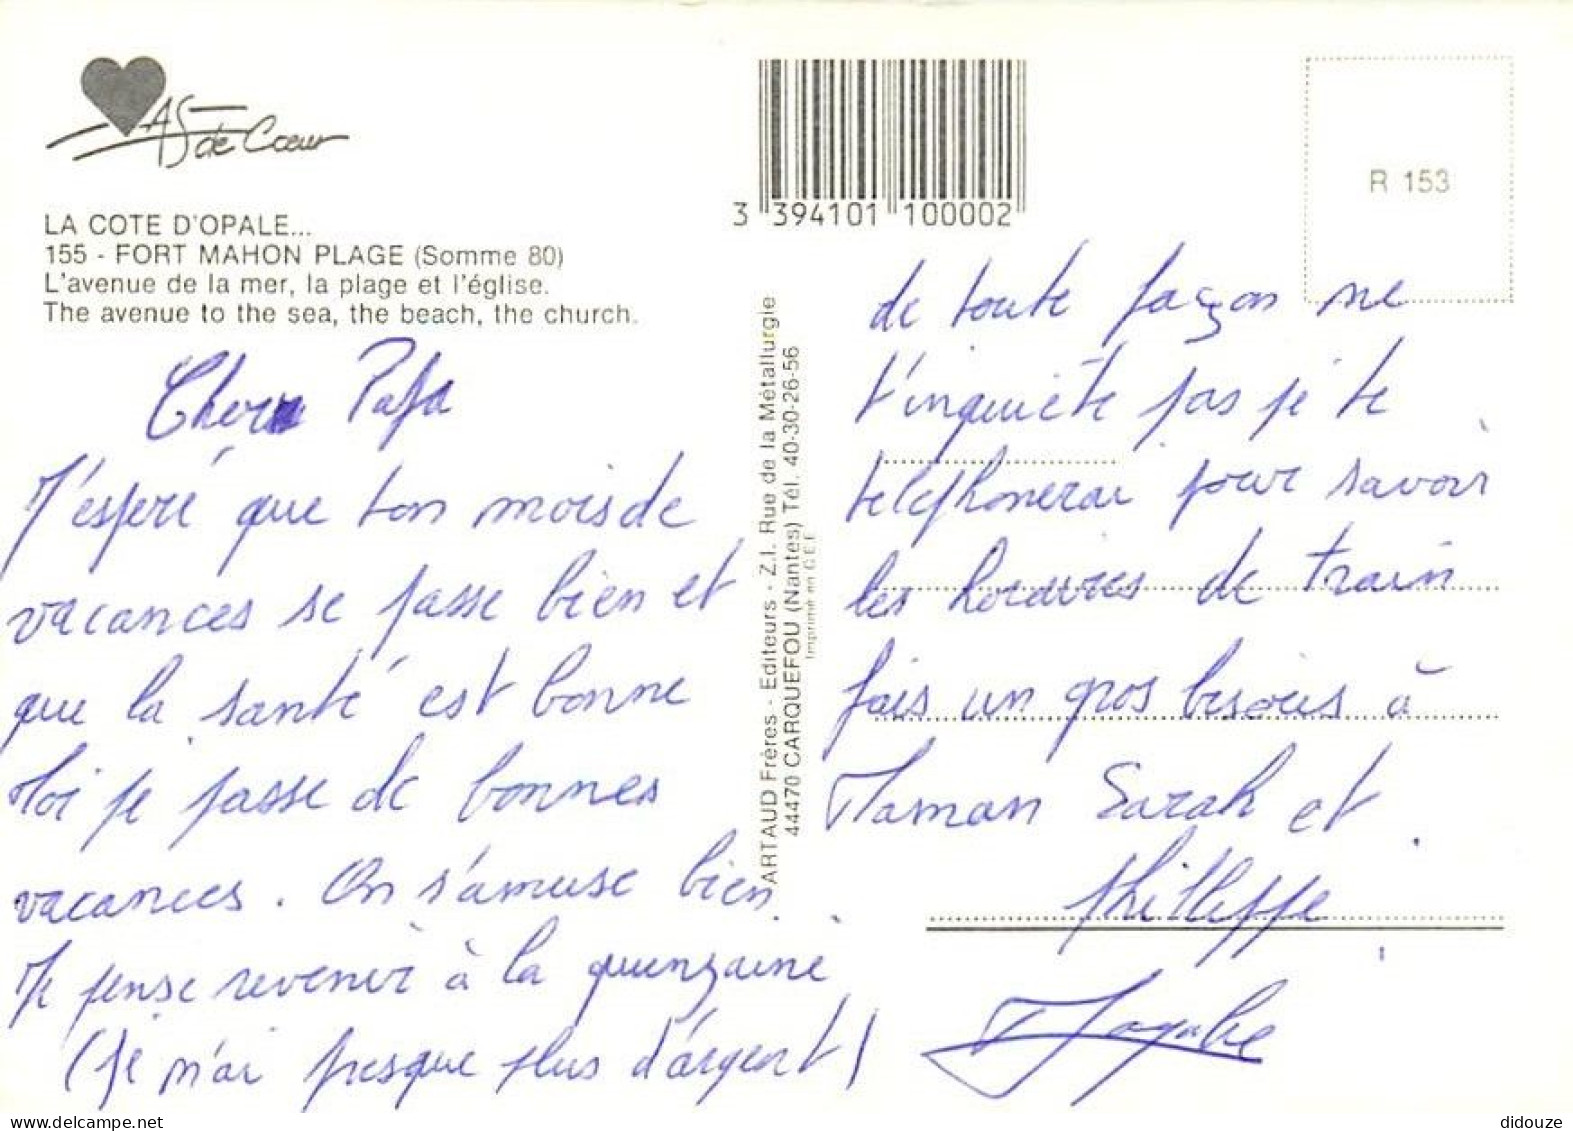 AS de Cœur
LA COTE D'OPALE...
155 - FORT MAHON PLAGE (Somme 80)
L'avenue de la mer, la plage et l'église.
The avenue to the sea, the beach, the church.
3 394101 100002
R 153
ARTAUD Frères - Editeurs - Z.I. Rue de la Métallurgie
44470 CARQUEFOU (Nantes) Tél. 40-30-26-56
Imprimé en C.E.E.
Cher Papa
J'esperé que ton mois de
vacances se passe bien et
que la santé est bonne
Moi je passe de bonnes
vacances. On s'amuse bien.
Je pense revenir à la quinzaine
(je n'ai presque plus d'argent)
de toute façon ne
t'inquiète pas je te
telephonerai pour savoir
les horaires de train
fais un gros bisous à
Maman Sarah et
Philleppe
didouze